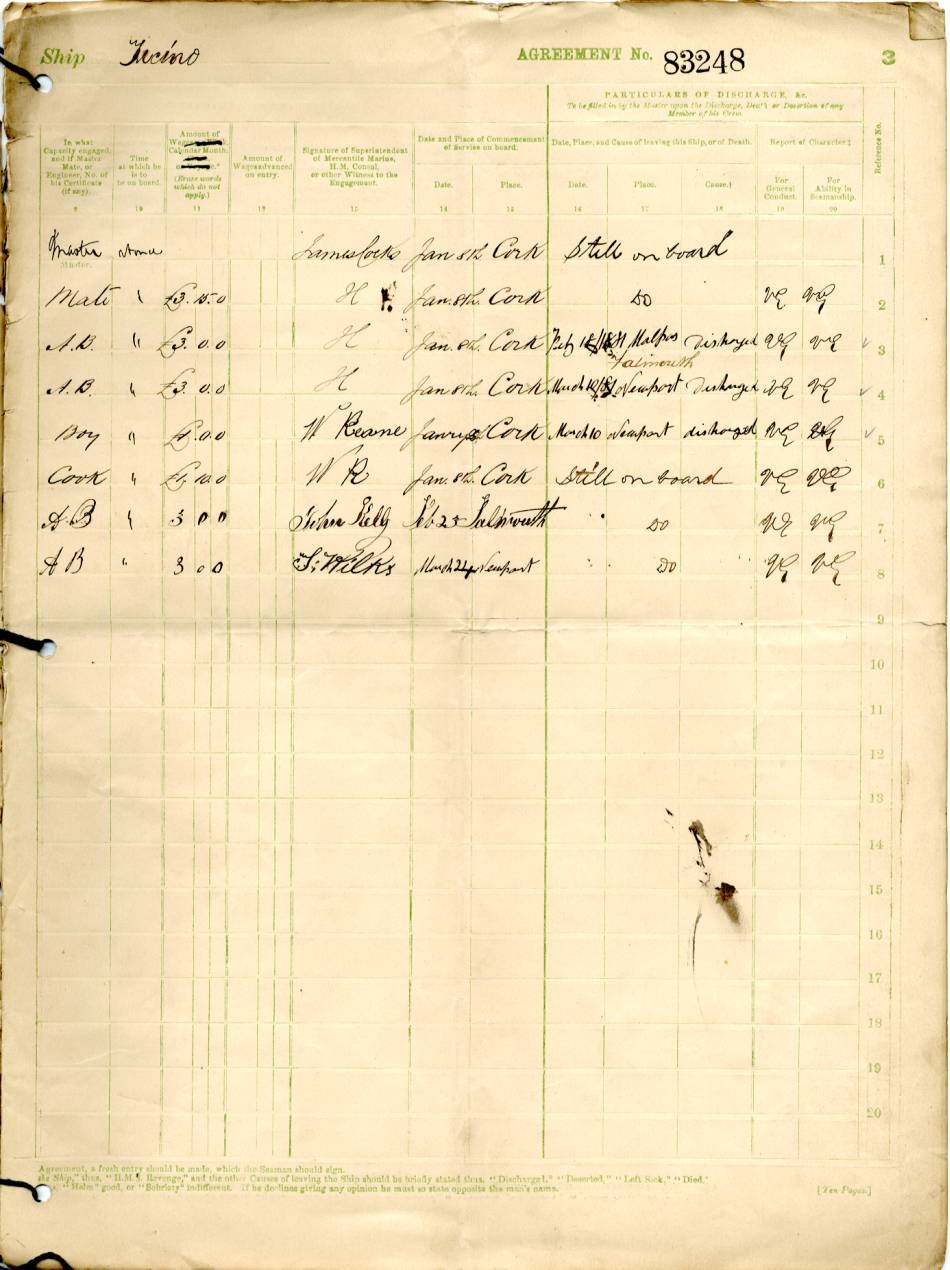 Ship Ticino AGREEMENT No. 83248 3
PARTICULARS OF DISCHARGE, &c.
To be filled in by the Master upon the Discharge, Death or Desertion of any Member of his Crew.
In what Capacity engaged, and if Master Mate, or Engineer, No. of his Certificate (if any).
Time at which he is to be on board.
Amount of Wages Calendar Month,
(Erase words which do not apply.)
Amount of Wages advanced on entry.
Signature of Superintendent of Mercantile Marine, H.M. Consul, or other Witness to the Engagement.
Date and Place of Commencement of Service on board.
Date. Place.
Date, Place, and Cause of leaving this Ship, or of Death.
Date. Place. Cause.†
Report of Character.‡
For General Conduct. For Ability in Seamanship.
Reference No.
9 10 11 12 13 14 15 16 17 18 19 20
Master at once James Cocks Jan 8th Cork Still on board 1
Master.
Mate " £3. 15. 0 H Jan. 8th. Cork Do VG VG 2
A.B. " £3. 0. 0 H Jan. 8th. Cork Feby Malpas Discharged VG VG 3
Falmouth
A.B. " £3. 0. 0 H Jan 8th Cork March Newport Discharged VG VG 4
Boy " £1. 0. 0 W Keane Janry Cork March 10 Newport discharged VG VG 5
Cook " £1. 10. 0 W K Jan. 8th. Cork Still on board VG VG 6
A.B " 3 0 0 John Kelly Feb 25 Falmouth " Do VG VG 7
A B " 3 0 0 T. Wilks March Newport " Do " VG VG 8
9
10
11
12
13
14
15
16
17
18
19
20
Agreement, a fresh entry should be made, which the Seaman should sign.
the Ship," thus, "H.M.S. Revenge," and the other Causes of leaving the Ship should be briefly stated thus, "Discharged," "Deserted," "Left Sick," "Died."
"Helm" good, or "Sobriety" indifferent. If he declines giving any opinion he must so state opposite the man's name.
[Ten Pages.]